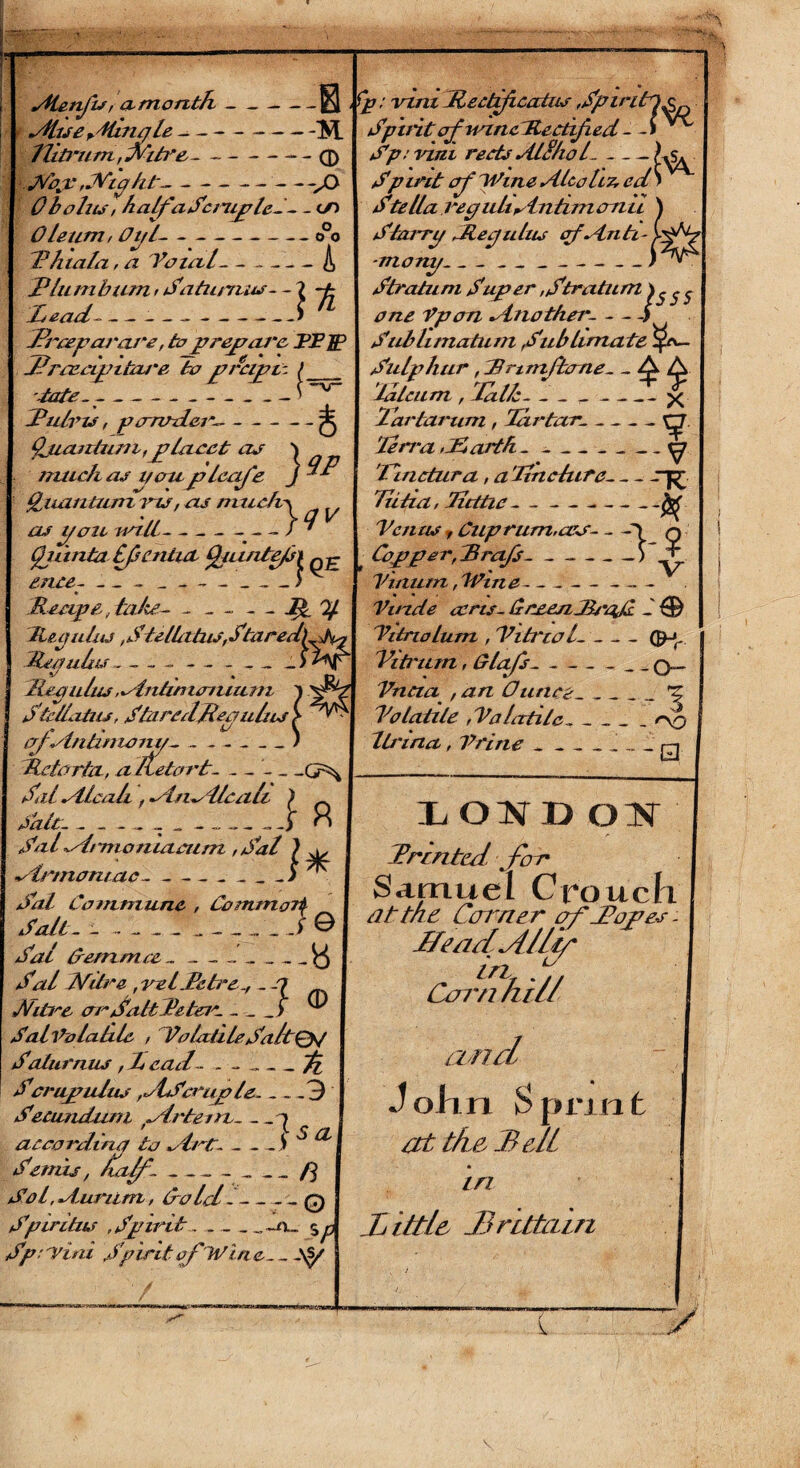 Mensis, a month
Mise, Mingle M
Nitrum, Nitre
Nox, Night
Obolus, half a Scruple
Oleum, Oyl
Phiala, a Voial
Plumbum, Saturnus
Lead
Præparare, to prepare PPP
Præcipitare to præcipi-
-tate
Pulvis, powder
Quantum, placet as
much as you please qp
Quantum vis, as much
as you will q v
Quinta Essentia Quintess
ence QE
Recipe, take ℞ ♃
Regulus, Stellatus, Stared
Regulus
Regulus, Antimonium
Stellatus, Stared Regulus
of Antimony
Retorta, a Retort
Sal Alcali, An Alcali
Salt
Sal Armoniacum, Sal
Armoniac
Sal Commune, Common
Salt
Sal Gemmæ
Sal Nitre, vel Petre,
Nitre or Salt Peter
Sal Volatile, Volatile Salt
Saturnus, Lead
Scrupulus, A Scruple ℈
Secundum, Artem,
according to Art S a
Semis, half ß
Sol, Aurum, Gold
Spiritus, Spirit Sp
Sp: Vini Spirit of Wine
Sp: vini Rectificatus, Spirit
Spirit of wine Rectified
Sp: vini rects Alkhol
Spirit of Wine Alcolized
Stella reguli Antimonii
Starry Regulus of Anti-
-mony
Stratum Super, Stratum
one Vpon Another SSS
Sublimatum, Sublimate
Sulphur, Brimstone
Talcum, Talk X
Tartarum, Tartar
Terra, Earth
Tinctura, a Tincture
Tutia, Tuttie
Venus, Cuprum, æs
Copper, Brass
Vinum, Wine V
Viride æris Green Brass
Vitriolum, Vitriol
Vitrum, Glass
Vncia, an Ounce
Volatile, Valatile
Urina, Vrine
LONDON
Printed for
Samuel Crouch
at the Corner of Popes-
Head Ally
in
Cornhill
and
John Sprint
at the Bell
in
Little Brittain